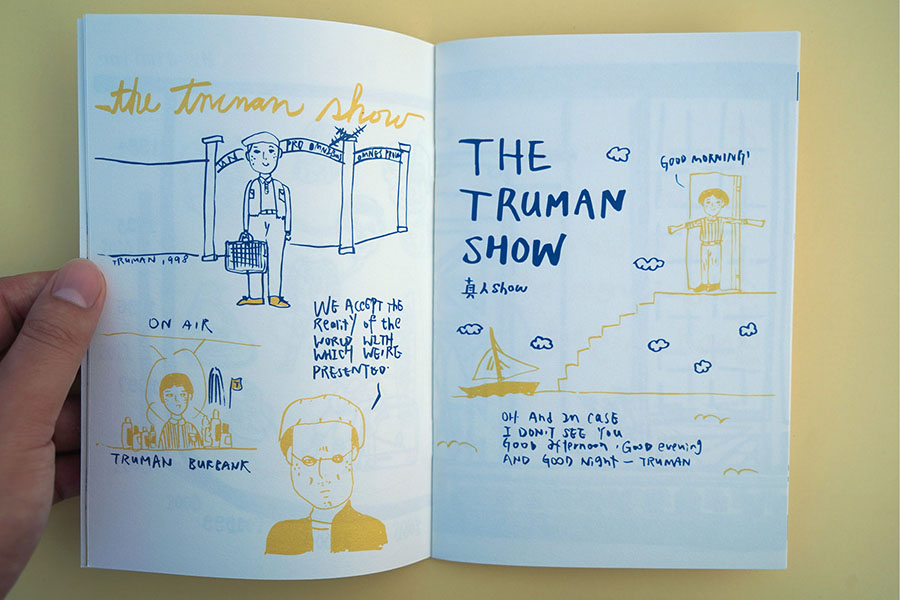 the truman show
PRO OMNIBUS
OMNES PRO
TRUMAN, 1998
ON AIR
TRUMAN BURBANK
WE ACCEPT THE
Reality of the
WORLD WITH
WHICH WE'RE
PRESENTED.
THE
TRUMAN
SHOW
真人 show
GOOD MORNING!
OH And In CASE
I DON'T SEE YOU
Good afternoon, Good evening
AND GOOD Night — TRUMAN